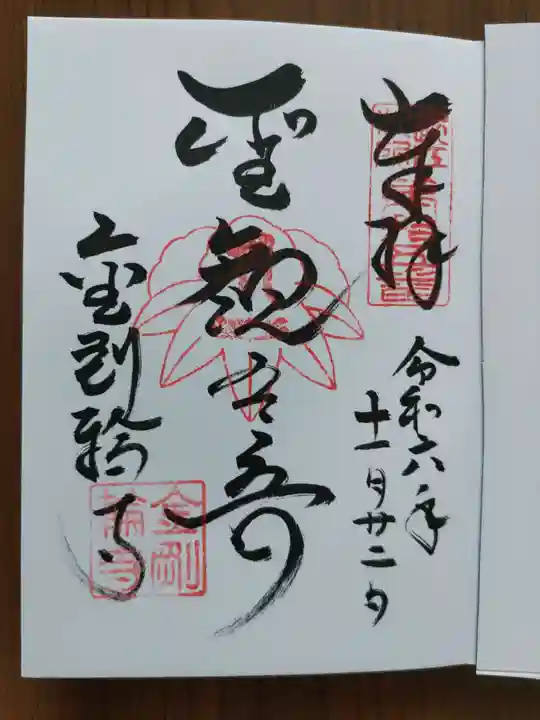 奉拝
令和六年
十一月廿二日
聖観世音
金剛輪寺
金剛
輪寺